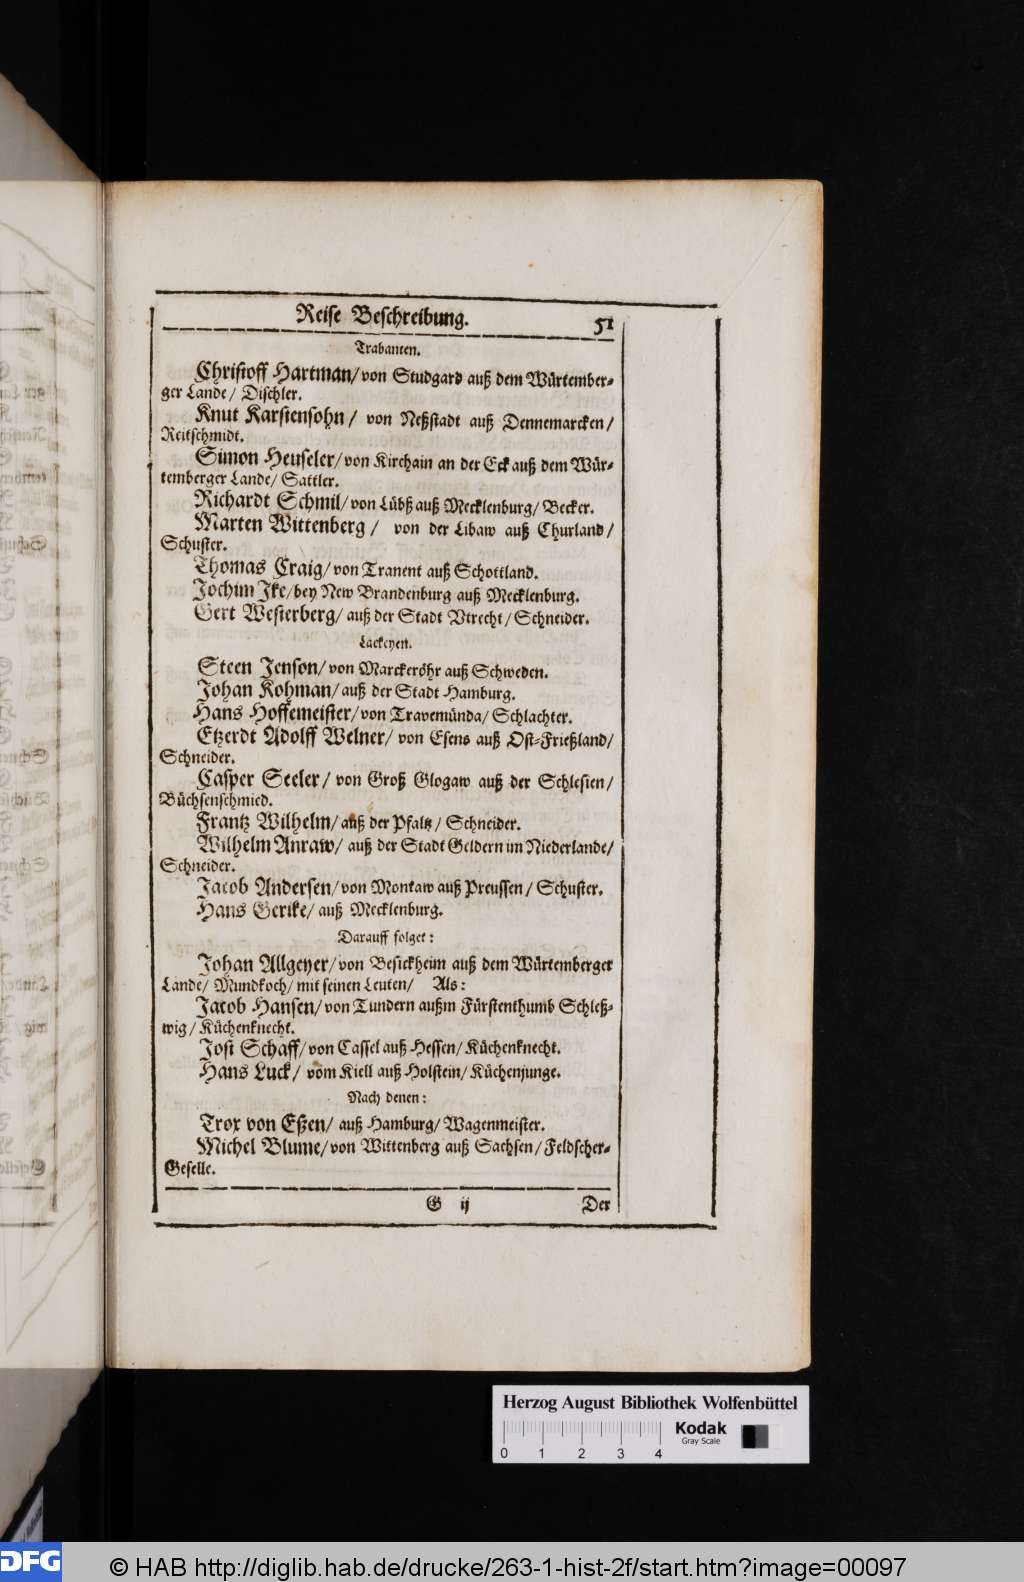 Reise Beschreibung. 51
Trabanten.
Christoff Hartman/ von Studgard auß dem Würtember-
ger Lande/ Dischler.
Knut Karstensohn/ von Neßstadt auß Dennemarcken/
Reitschmidt.
Simon Heuseler/ von Kirchain an der Eck auß dem Wür-
temberger Lande/ Sattler.
Richardt Schmil/ von Lübß auß Mecklenburg/ Becker.
Marten Wittenberg/ von der Libaw auß Churland/
Schuster.
Thomas Craig/ von Tranent auß Schottland.
Jochim Ike/ bey New Brandenburg auß Mecklenburg.
Gert Westerberg/ auß der Stadt Vtrecht/ Schneider.
Lackeyen.
Steen Jenson/ von Marckeröhr auß Schweden.
Johan Kohman/ auß der Stadt Hamburg.
Hans Hoffemeister/ von Travemünda/ Schlachter.
Etzerdt Adolff Welner/ von Esens auß Ost-Frießland/
Schneider.
Casper Seeler/ von Groß Glogaw auß der Schlesien/
Büchsenschmied.
Frantz Wilhelm/ auß der Pfaltz/ Schneider.
Wilhelm Anraw/ auß der Stadt Geldern im Niederlande/
Schneider.
Jacob Andersen/ von Montaw auß Preussen/ Schuster.
Hans Gerike/ auß Mecklenburg.
Darauff folget:
Johan Allgeyer/ von Besickheim auß dem Würtemberger
Lande/ Mundkoch/ mit seinen Leuten/ Als:
Jacob Hansen/ von Tundern außm Fürstenthumb Schleß-
wig/ Küchenknecht.
Jost Schaff/ von Cassel auß Hessen/ Küchenknecht.
Hans Luck/ vom Kiell auß Holstein/ Küchenjunge.
Nach denen:
Trox von Eßen/ auß Hamburg/ Wagenmeister.
Michel Blume/ von Wittenberg auß Sachsen/ Feldscher-
Geselle.
G ij Der
Herzog August Bibliothek Wolfenbüttel
Kodak
Gray Scale
0 1 2 3 4
DFG
© HAB http://diglib.hab.de/drucke/263-1-hist-2f/start.htm?image=00097